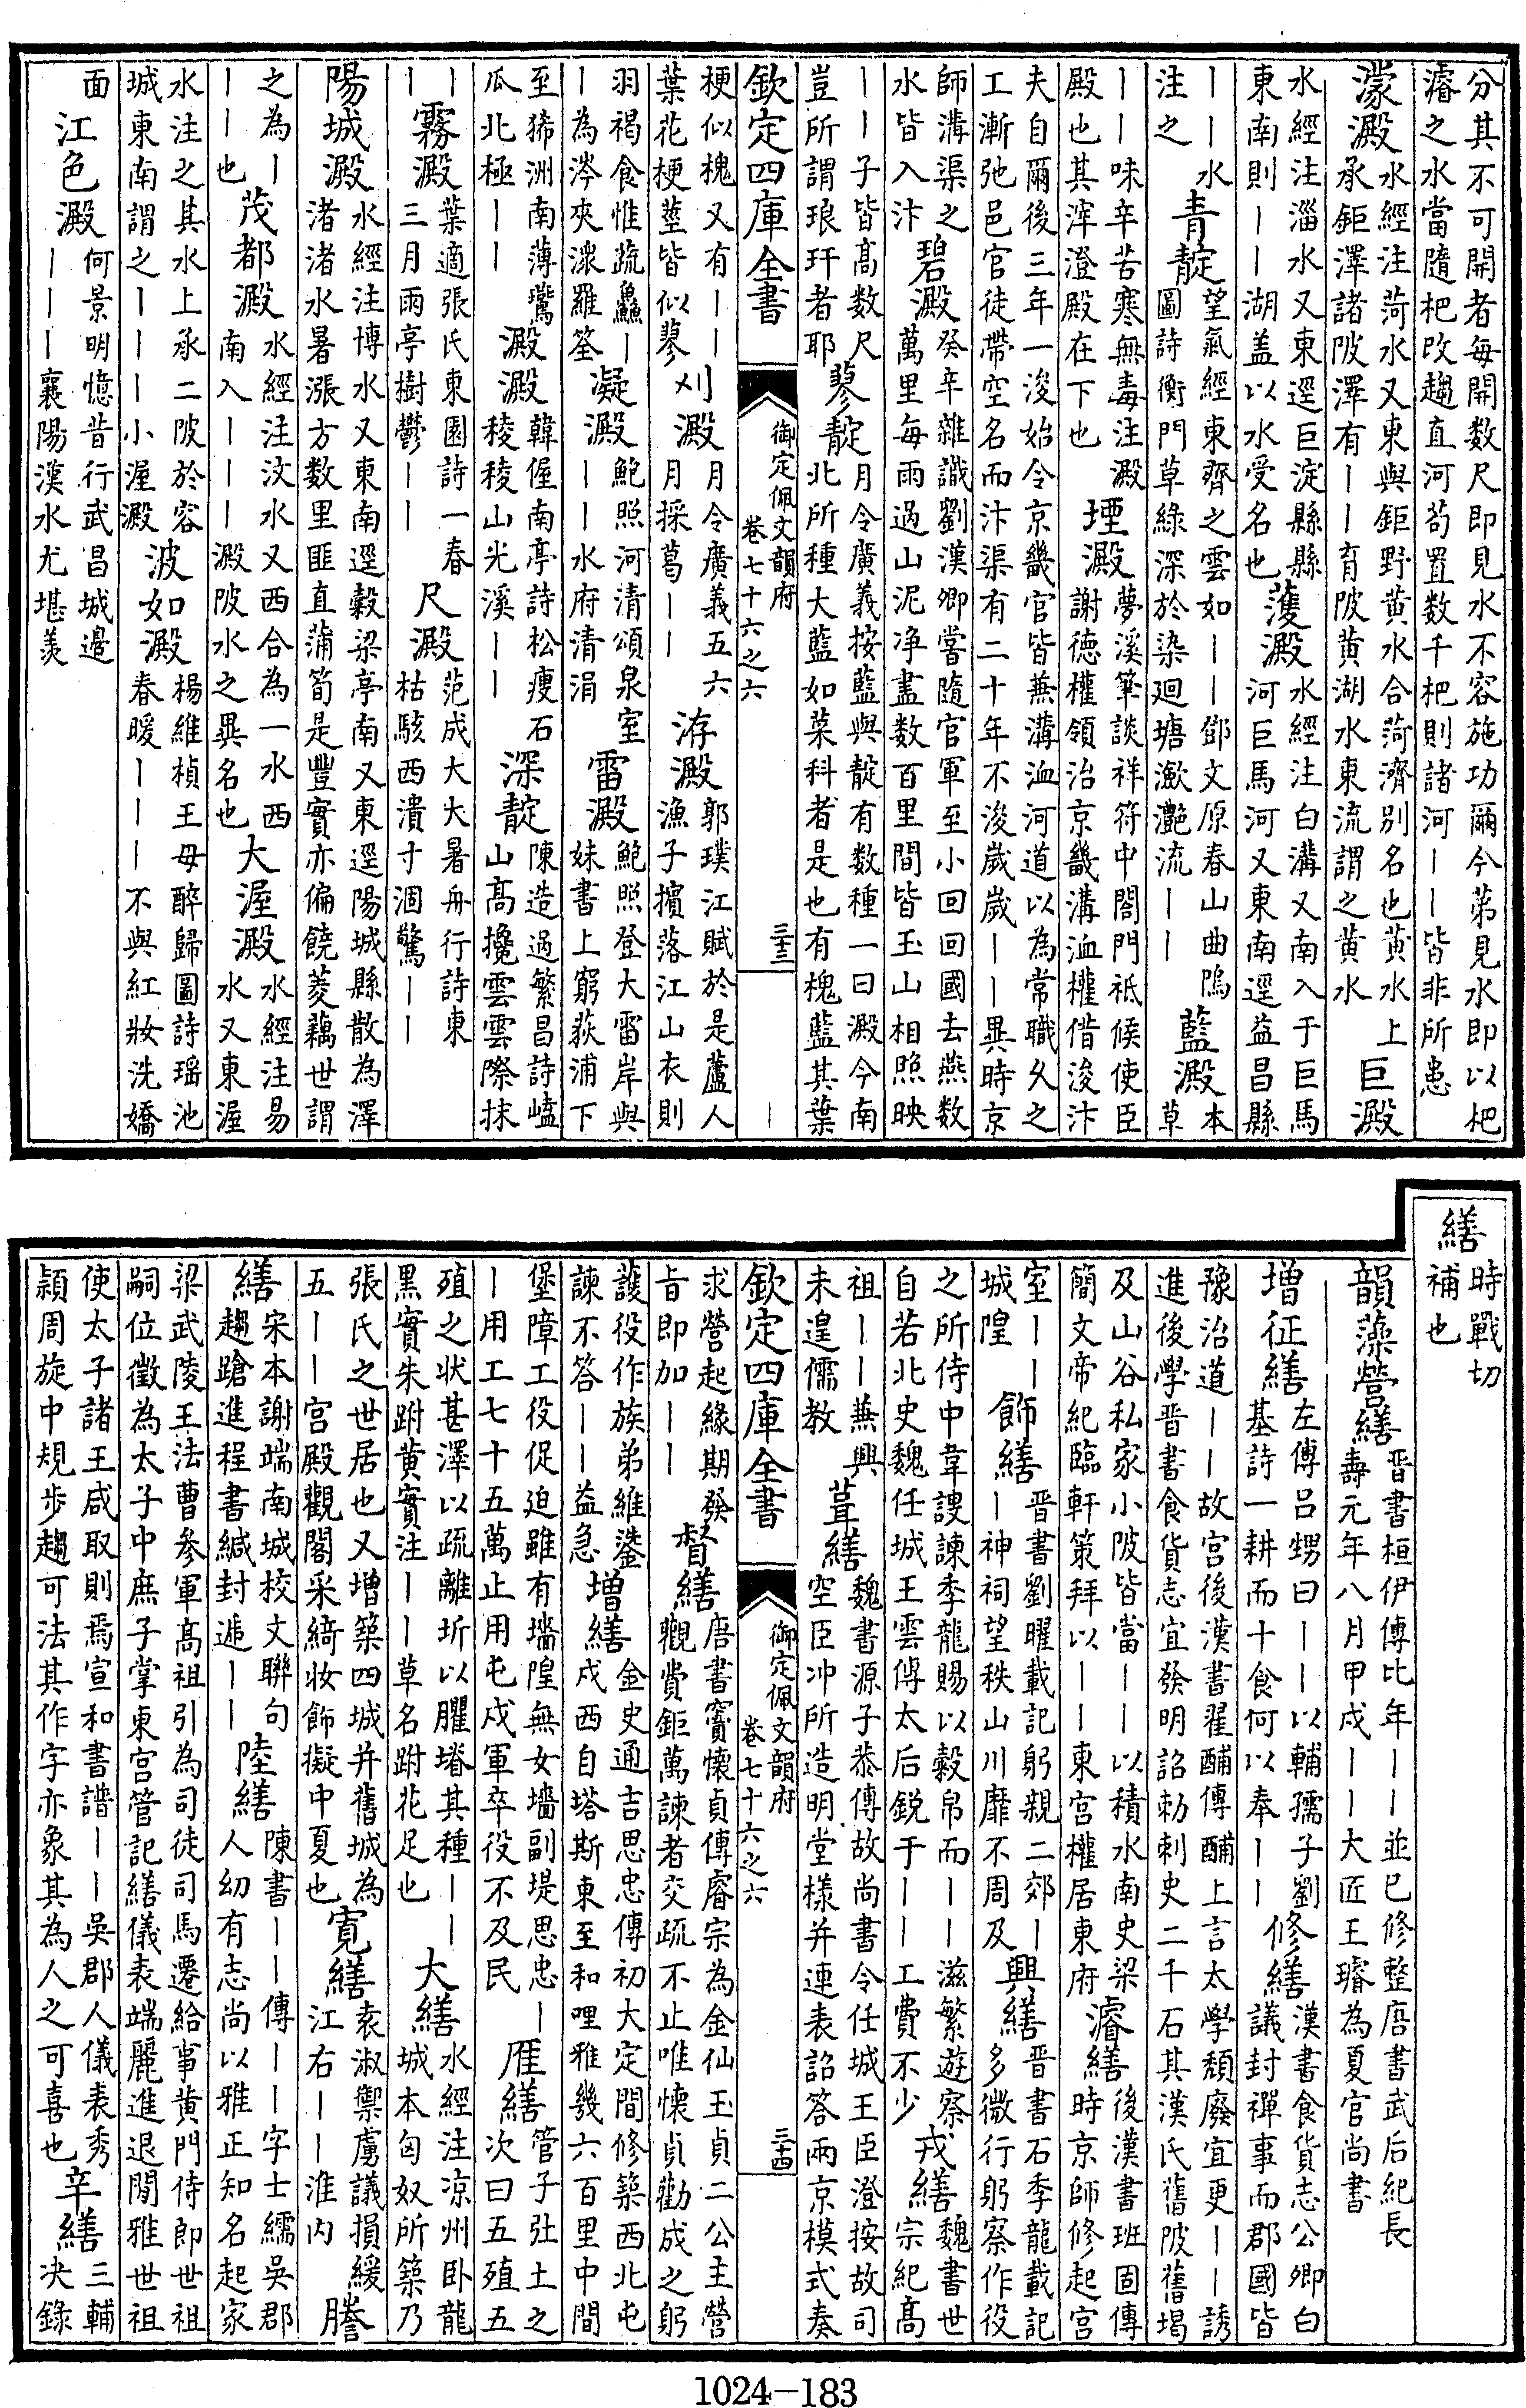 分其不可開者每開数尺即見水不容施功爾今苐見水即以杷
濬之水當隨杷改趨直河苟置数千杷則諸河丨丨皆非所患
濛澱
水經注菏水又東與鉅野黄水合菏濟别名也黄水上
承鉅澤諸陂澤有丨丨育陂黄湖水東流謂之黄水
巨澱
水經注淄水又東逕巨淀縣縣
東南則丨丨湖盖以水受名也
濩澱
水經注白溝又南入于巨馬
河巨馬河又東南逕益昌縣
丨丨水
注之
青靛
望氣經東齊之雲如丨丨鄧文原春山曲隖
圖詩衡門草綠深於染廻塘瀲灔流丨丨
藍澱
本
草
丨丨味辛苦寒無毒注澱
殿也其滓澄殿在下也
堙澱
夢溪筆談祥符中閤門祗候使臣
謝德權領治京畿溝洫權借浚汴
夫自爾後三年一浚始令京畿官皆兼溝洫河道以為常職久之
工漸弛邑官徒帶空名而汴渠有二十年不浚歲歲丨丨異時京
師溝渠之
水皆入汴
碧澱
癸辛雜識劉漢卿嘗隨官軍至小回回國去燕数
萬里每雨過山泥净盡数百里間皆玉山相照映
丨丨子皆高数尺
豈所謂琅玕者耶
蓼靛
月令廣義按藍與靛有数種一曰澱今南
北所種大藍如菜科者是也有槐藍其葉
欽定四庫全書
御定佩文韻府
卷七十六之六
三十三
梗似槐又有丨丨
葉花梗莖皆似蓼
刈澱
月令廣義五六
月採葛丨丨
洊澱
郭璞江賦於是蘆人
漁子擯落江山衣則
羽褐食惟疏鱻丨
丨為涔夾潨羅筌
凝澱
鮑照河清頌泉室
丨丨水府清涓
雷澱
鮑照登大雷岸與
妹書上窮荻浦下
至狶洲南薄鷰
瓜北極丨丨
澱澱
韓偓南亭詩松瘦石
稜稜山光溪丨丨
深靛
陳造過繁昌詩嵓
山高攙雲雲際抹
丨
丨
霧澱
葉適張氏東園詩一春
三月雨亭樹鬱丨丨
尺澱
范成大大暑舟行詩東
枯駭西潰寸涸驚丨丨
陽城澱
水經注博水又東南逕穀梁亭南又東逕陽城縣散為澤
渚渚水暑漲方数里匪直蒲筍是豐實亦偏饒菱藕世謂
之為丨
丨丨也
茂都澱
水經注汶水又西合為一水西
南入丨丨丨澱陂水之異名也
大渥澱
水經注易
水又東渥
水注之其水上承二陂於容
城東南謂之丨丨丨小渥澱
波如澱
楊維楨王母醉歸圖詩瑶池
春暖丨丨丨不與紅妝洗嬌
面
江色澱
何景明憶昔行武昌城邉
丨丨丨襄陽漢水尤堪羨
繕
時戰切
補也
韻藻營繕
晋書桓伊傳比年丨丨並已修整唐書武后紀長
壽元年八月甲戌丨丨大匠王璿為夏官尚書
增征繕
左傳呂甥曰丨丨以輔孺子劉
基詩一耕而十食何以奉丨丨
修繕
漢書食貨志公卿白
議封禪事而郡國皆
豫治道丨丨故宫後漢書翟酺傳酺上言太學頹廢宜更丨丨誘
進後學晋書食貨志宜發明詔勅刺史二千石其漢氏舊陂舊堨
及山谷私家小陂皆當丨丨以積水南史梁
簡文帝紀臨軒策拜以丨丨東宫權居東府
濬繕
後漢書班固傳
時京師修起宫
室丨丨
城隍
飾繕
晋書劉曜載記躬親二郊丨
丨神祠望秩山川靡不周及
興繕
晋書石季龍載記
多微行躬察作役
之所侍中韋謏諫季龍賜以穀帛而丨丨滋繁遊察
自若北史魏任城王雲傳太后鋭于丨丨工費不少
戎繕
魏書世
宗紀高
祖丨丨兼興
未遑儒教
葺繕
魏書源子恭傳故尚書令任城王臣澄按故司
空臣冲所造明堂樣并連表詔答兩京模式奏
欽定四庫全書
御定佩文韻府
卷七十六之六
三十四
求營起緣期發
旨即加丨丨
督繕
唐書竇懷貞傳睿宗為金仙玉貞二公主營
觀費鉅萬諫者交疏不止唯懷貞勸成之躬
護役作族弟維鍌
諫不答丨丨益急
增繕
金史通吉思忠傳初大定間修築西北屯
戍西自塔斯東至和哩雅幾六百里中間
堡障工役促迫雖有墻隍無女墻副堤思忠丨
丨用工七十五萬止用屯戍軍卒役不及民
雁繕
管子𡉏土之
次曰五殖五
殖之狀甚澤以疏離坼以臞塉其種丨丨
黑實朱跗黄實注丨丨草名跗花足也
大繕
水經注凉州卧龍
城本匈奴所築乃
張氏之世居也又增築四城并舊城為
五丨丨宫殿觀閣采綺妝飾擬中夏也
寛繕
袁淑禦虜議損緩
江右丨丨淮内
謄
繕
宋本謝端南城校文聯句
趨蹌進程書緘封遞丨丨
陸繕
陳書丨丨傳丨丨字士繻吳郡
人幼有志尚以雅正知名起家
梁武陵王法曹參軍高祖引為司徒司馬遷給事黄門侍郎世祖
嗣位徵為太子中庶子掌東宫管記繕儀表端麗進退閒雅世祖
使太子諸王咸取則焉宣和書譜丨丨吳郡人儀表秀
頴周旋中規步趨可法其作字亦象其為人之可喜也
辛繕
三輔
决錄
1024-183